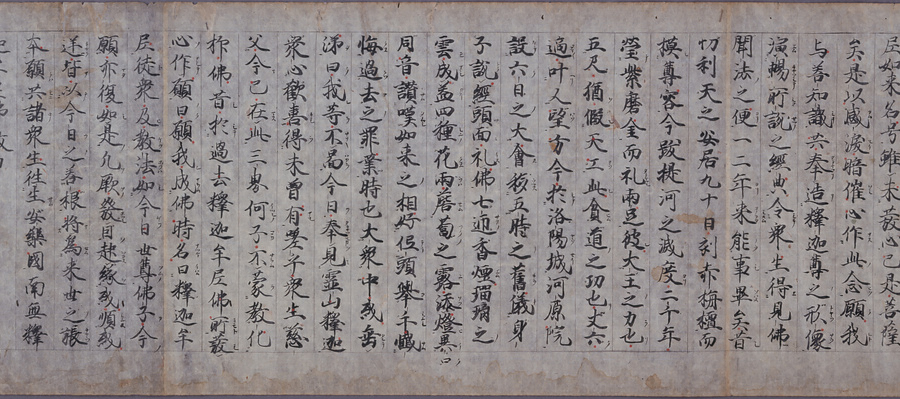 尼如来名号雖未發心已是菩薩
矣是以感淚暗催心作此念願我
与善知識共奉造釋迦尊之形像
演暢所說之經典令衆生得見佛
聞法之便一二年来能事畢矣昔
忉利天之安居九十日刻赤栴檀而
摸尊容今跋提河之滅度二千年
瑩紫磨金而礼両足彼大王之力也
五尺猶假天工此貧道之功也丈六
適叶人望方今於洛陽城河原院
設六日之大會移五時之舊儀身
子說經頭面礼佛七迊香煙瑠璃之
雲成盖四種花雨蒼蔔之露添燈異口
同音讃嘆如来之相好但頭舉手懺
悔過去之罪業時也大衆中或垂
涕曰我等不啚今日奉見霊山釋迦
衆心歡喜得未曽有堂子衆生慈
父今已在此三界何子不蒙教化
抑佛昔於過去釋迦牟尼佛所發
心作願曰願我成佛時名曰釋迦牟
尼徒衆及教法如今日世尊佛子今
願亦復如是凡厥發自起緣或順或
逆皆以今日之善根將為来世之張
本願共諸衆生徃生安樂國南無釋